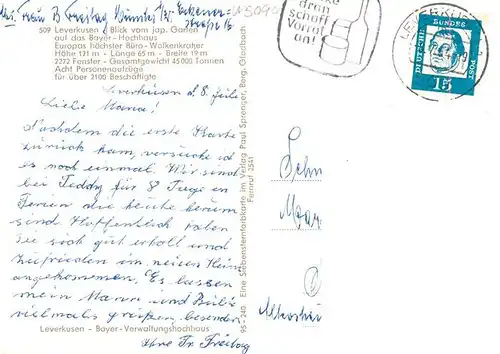 509 Leverkusen - Blick vom jap. Garten
auf das Bayer-Hochhaus
Europas höchster Büro-Wolkenkratzer
Höhe 121 m - Länge 65 m - Breite 19 m
2272 Fenster - Gesamtgewicht 45 000 Tonnen
Acht Personenaufzüge
für über 2100 Beschäftigte
Leverkusen d. 8.
Liebe Mama!
Nachdem die erste Karte
zurück kam, versuche ich
es noch einmal. Wir sind
bei Teddy für 8 Tage in
Ferien die heute herum
sind. Hoffentlich haben
Sie sich gut erholt und
zufrieden im neuen Heim
angekommen. Es lassen
mein Mann und
vielmals grüßen, besonders
Ihre Fr. Freitag
Leverkusen - Bayer-Verwaltungshochhaus
95-240 Eine Siebensternfarbkarte im Verlag Paul Sprenger, Berg. Gladbach
Fernruf 2541
denke
dran
schaff
Vorrat
an!
LEVERKUSEN
DEUTSCHE
BUNDES
POST
15